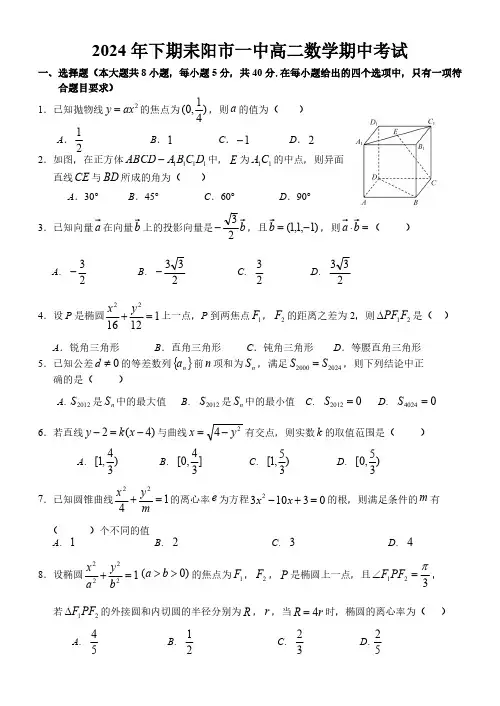 2024 年下期耒阳市一中高二数学期中考试
一、选择题（本大题共 8 小题，每小题 5 分，共 40 分.在每小题给出的四个选项中，只有一项符
合题目要求）
1．已知抛物线 y = ax² 的焦点为 (0, 1/4)，则 a 的值为（ ）
A． 1/2 B．1 C．−1 D．2
2．如图，在正方体 ABCD − A₁B₁C₁D₁ 中，E 为 A₁C₁ 的中点，则异面
直线 CE 与 BD 所成的角为（ ）
A．30° B．45° C．60° D．90°
D₁ C₁
E
A₁ B₁
D C
A B
3．已知向量 a⃗ 在向量 b⃗ 上的投影向量是 −√3/2 b⃗，且 b⃗ = (1,1,−1)，则 a⃗ · b⃗ =（ ）
A. −3/2 B. −3√3/2 C. 3/2 D. 3√3/2
4．设 P 是椭圆 x²/16 + y²/12 = 1 上一点，P 到两焦点 F₁，F₂ 的距离之差为 2，则 ΔPF₁F₂ 是（ ）
A．锐角三角形 B．直角三角形 C．钝角三角形 D．等腰直角三角形
5．已知公差 d ≠ 0 的等差数列 {aₙ} 前 n 项和为 Sₙ，满足 S₂₀₀₀ = S₂₀₂₄，则下列结论中正
确的是（ ）
A. S₂₀₁₂ 是 Sₙ 中的最大值 B. S₂₀₁₂ 是 Sₙ 中的最小值 C. S₂₀₁₂ = 0 D. S₄₀₂₄ = 0
6．若直线 y − 2 = k(x − 4) 与曲线 x = √(4 − y²) 有交点，则实数 k 的取值范围是（ ）
A. [1, 4/3) B. [0, 4/3] C. [1, 5/3) D. [0, 5/3)
7．已知圆锥曲线 x²/4 + y²/m = 1 的离心率 e 为方程 3x² − 10x + 3 = 0 的根，则满足条件的 m 有
（ ）个不同的值
A. 1 B. 2 C. 3 D. 4
8．设椭圆 x²/a² + y²/b² = 1 (a > b > 0) 的焦点为 F₁，F₂，P 是椭圆上一点，且 ∠F₁PF₂ = π/3，
若 ΔF₁PF₂ 的外接圆和内切圆的半径分别为 R，r，当 R = 4r 时，椭圆的离心率为（ ）
A. 4/5 B. 1/2 C. 2/3 D. 2/5